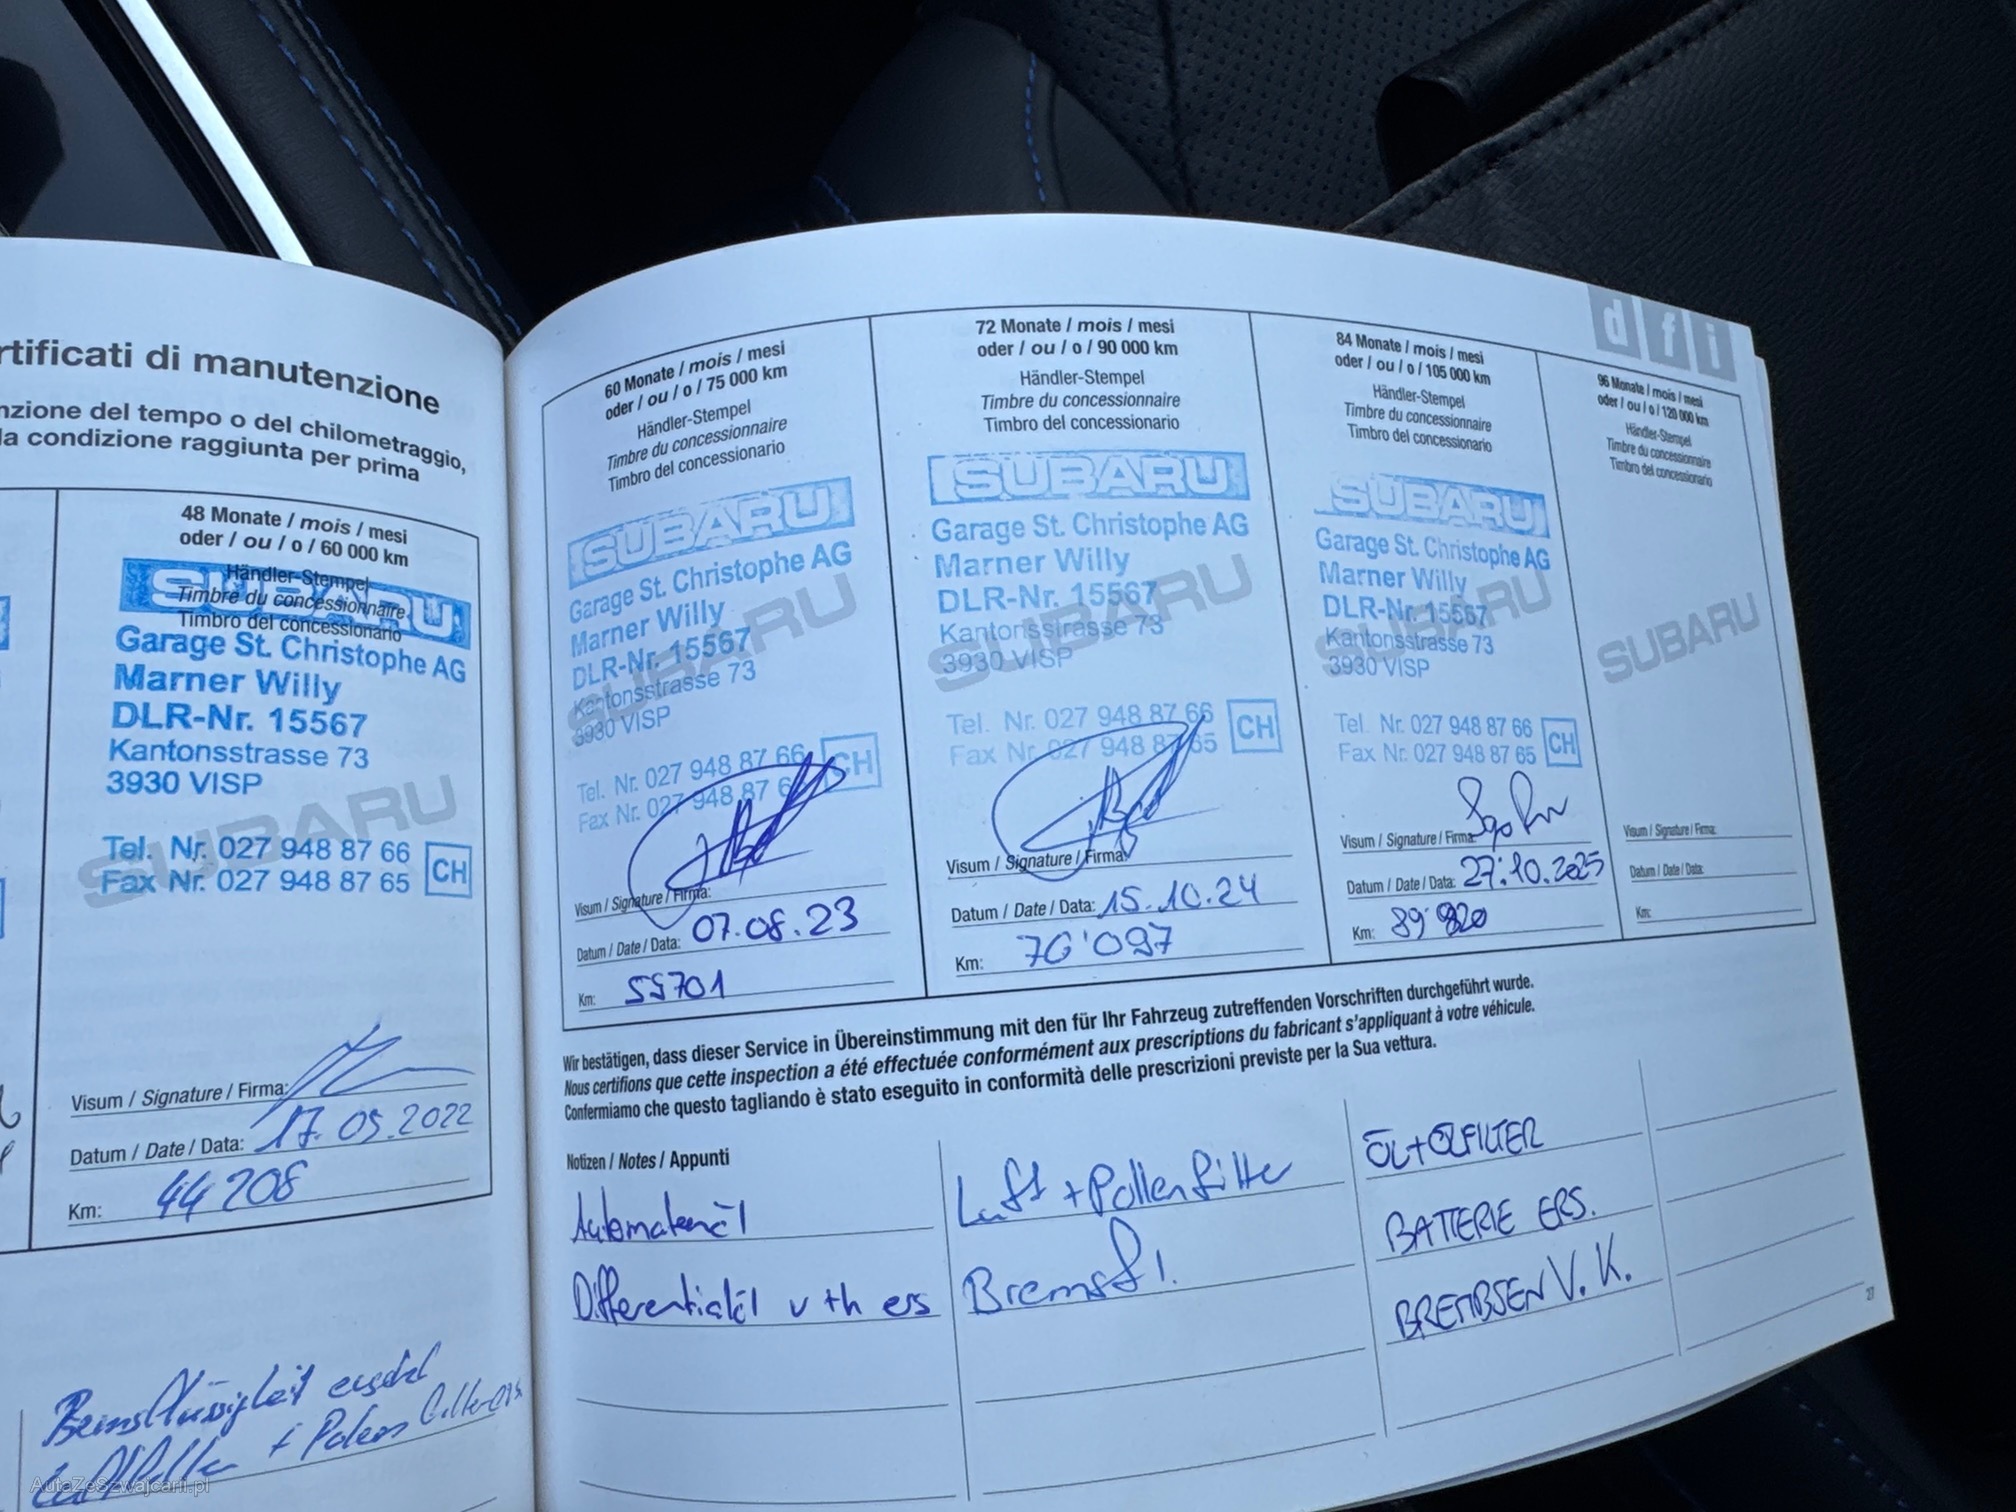 rtificati di manutenzione
nzione del tempo o del chilometraggio,
la condizione raggiunta per prima
48 Monate / mois / mesi
oder / ou / o / 60 000 km
Händler-Stempel
Timbre du concessionnaire
Timbro del concessionario
SUBARU
Garage St. Christophe AG
Marner Willy
DLR-Nr. 15567
Kantonsstrasse 73
3930 VISP
SUBARU
Tel. Nr. 027 948 87 66
Fax Nr. 027 948 87 65
CH
Visum / Signature / Firma:
Datum / Date / Data: 17.05.2022
Km: 44 208
Bremsflüssigkeit ersetzt
+ Polen
60 Monate / mois / mesi
oder / ou / o / 75 000 km
Händler-Stempel
Timbre du concessionnaire
Timbro del concessionario
SUBARU
Garage St. Christophe AG
Marner Willy
DLR-Nr. 15567
Kantonsstrasse 73
3930 VISP
SUBARU
Tel. Nr. 027 948 87 66
Fax Nr. 027 948 87 6
CH
Visum / Signature / Firma:
Datum / Date / Data: 07.08.23
Km: 55701
72 Monate / mois / mesi
oder / ou / o / 90 000 km
Händler-Stempel
Timbre du concessionnaire
Timbro del concessionario
SUBARU
Garage St. Christophe AG
Marner Willy
DLR-Nr. 15567
Kantonsstrasse 73
3930 VISP
SUBARU
Tel. Nr. 027 948 87 66
Fax Nr. 027 948 87 65
CH
Visum / Signature / Firma:
Datum / Date / Data: 15.10.24
Km: 70'097
84 Monate / mois / mesi
oder / ou / o / 105 000 km
Händler-Stempel
Timbre du concessionnaire
Timbro del concessionario
SUBARU
Garage St. Christophe AG
Marner Willy
DLR-Nr. 15567
Kantonsstrasse 73
3930 VISP
SUBARU
Tel. Nr. 027 948 87 66
Fax Nr. 027 948 87 65
CH
Visum / Signature / Firma:
Datum / Date / Data: 27.10.2025
Km: 89'820
d f i
96 Monate / mois / mesi
oder / ou / o / 120 000 km
Händler-Stempel
Timbre du concessionnaire
Timbro del concessionario
SUBARU
Visum / Signature / Firma:
Datum / Date / Data:
Km:
Wir bestätigen, dass dieser Service in Übereinstimmung mit den für Ihr Fahrzeug zutreffenden Vorschriften durchgeführt wurde.
Nous certifions que cette inspection a été effectuée conformément aux prescriptions du fabricant s'appliquant à votre véhicule.
Confermiamo che questo tagliando è stato eseguito in conformità delle prescrizioni previste per la Sua vettura.
Notizen / Notes / Appunti
Automatenöl
Differentialöl v+h ers
Luft + Pollenfilter
Bremsfl.
ÖL+ÖLFILTER
BATTERIE ERS.
BREMSEN V. K.
27
AutaZeSzwajcarii.pl